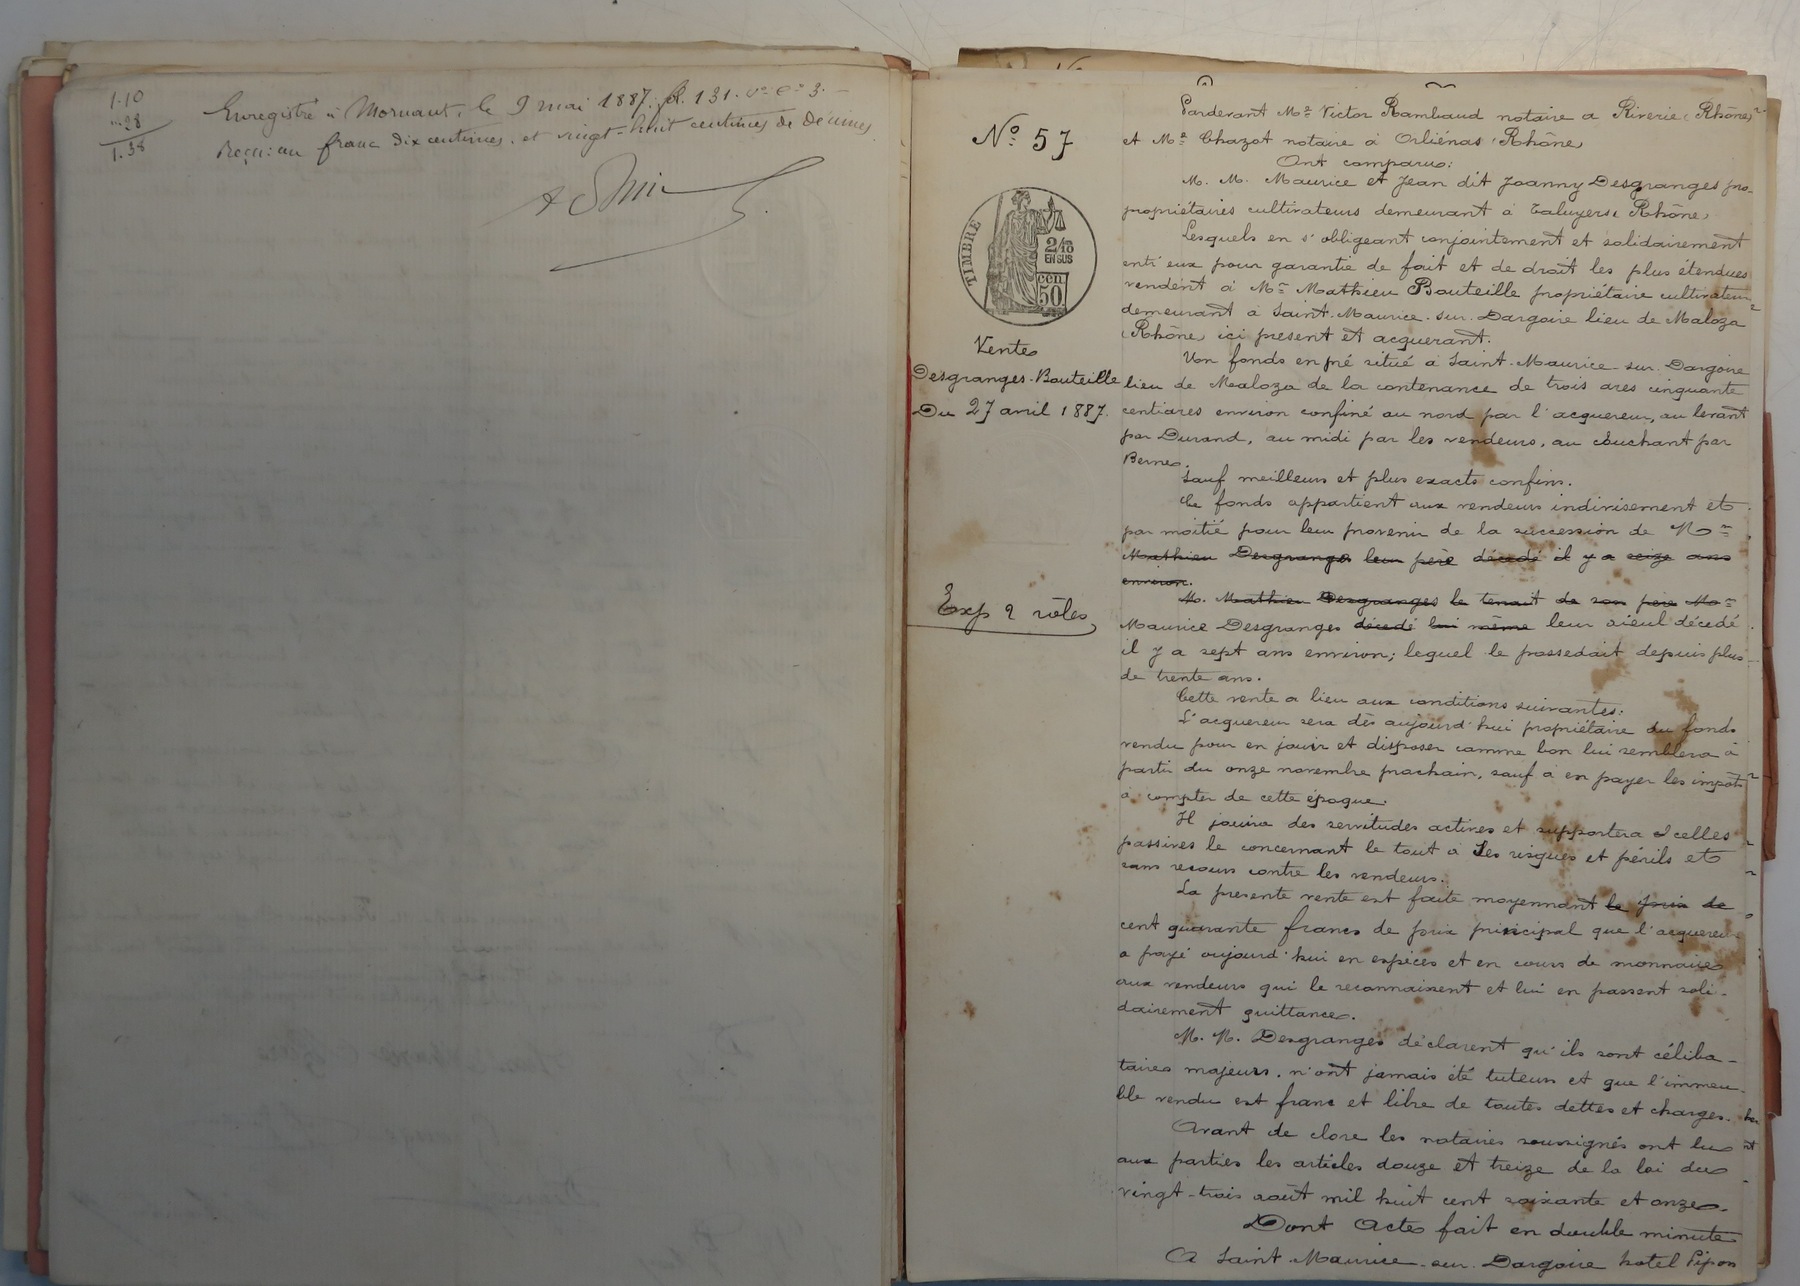 1.10
"28
1.38
Enregistré à Mornant, le 9 mai 1887. fol. 131. vo co 3. —
Reçu: un franc dix centimes, et vingt-huit centimes de décimes
No 57
TIMBRE
2/10 EN SUS
50 cen
Vente
Desgranges-Bouteille
Du 27 avril 1887.
Exp 2 rôles
Pardevant Me Victor Rambaud notaire a Riverie (Rhône)
et Me Chazot notaire à Orliénas (Rhône)
Ont comparu:
M. M. Maurice et Jean dit Joanny Desgranges pro-
propriétaires cultivateurs demeurant à Taluyers (Rhône)
Lesquels en s'obligeant conjointement et solidairement
entr'eux pour garantie de fait et de droit les plus étendues
vendent à Mr Mathieu Bouteille propriétaire cultivateur
demeurant à Saint-Maurice-sur-Dargoire lieu de Maloza
(Rhône) ici present et acquerant.
Un fonds en pré situé à Saint-Maurice sur Dargoire
lieu de Maloza de la contenance de trois ares cinquante
centiares environ confiné au nord par l'acquereur, au levant
par Durand, au midi par les vendeurs, au couchant par
Berne.
Sauf meilleurs et plus exacts confins.
Ce fonds appartient aux vendeurs indivisement et
par moitié pour leur provenir de la succession de Mr
Mathieu Desgranges leur père décédé il y a seize ans
environ.
M. Mathieu Desgranges le tenait de son père Mr
Maurice Desgranges décédé lui même leur aïeul décédé
il y a sept ans environ; lequel le possedait depuis plus
de trente ans.
Cette vente a lieu aux conditions suivantes:
L'acquereur sera dès aujourd'hui propriétaire du fonds
vendu pour en jouir et disposer comme bon lui semblera à
partir du onze novembre prochain, sauf à en payer les impots
à compter de cette époque.
Il jouira des servitudes actives et supportera celles
passives le concernant le tout à ses risques et périls et
sans recours contre les vendeurs.
La presente vente est faite moyennant le prix de
cent quarante francs de prix principal que l'acquereur
a payé aujourd'hui en espèces et en cours de monnaie
aux vendeurs qui le reconnaissent et lui en passent soli-
dairement quittance.
M. M. Desgranges déclarent qu'ils sont céliba-
taires majeurs, n'ont jamais été tuteurs et que l'immeu-
ble vendu est franc et libre de toutes dettes et charges.
Avant de clore les notaires soussignés ont lu
aux parties les articles douze et treize de la loi du
vingt-trois août mil huit cent soixante et onze.
Dont Acte fait en double minute
A Saint-Maurice-sur-Dargoire hotel Pipon